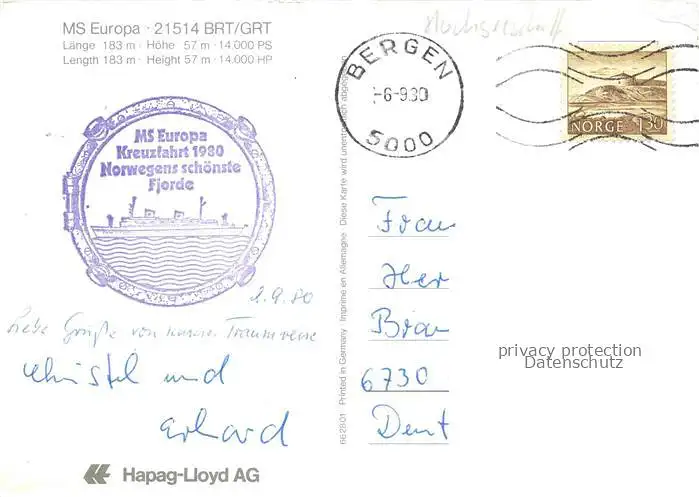 MS Europa · 21514 BRT/GRT
Länge 183 m · Höhe 57 m · 14.000 PS
Length 183 m · Height 57 m · 14.000 HP
MS Europa
Kreuzfahrt 1980
Norwegens schönste
Fjorde
2.9.80
Liebe Grüße von unserer Traumreise
Christel und
Erhard
Hapag-Lloyd AG
662801 Printed in Germany Imprimé en Allemagne Diese Karte wird unentgeltlich abgegeben
BERGEN
-6-9.80
5000
NORGE 1,30
Frau
Her
Brau
6730
Deut
privacy protection
Datenschutz